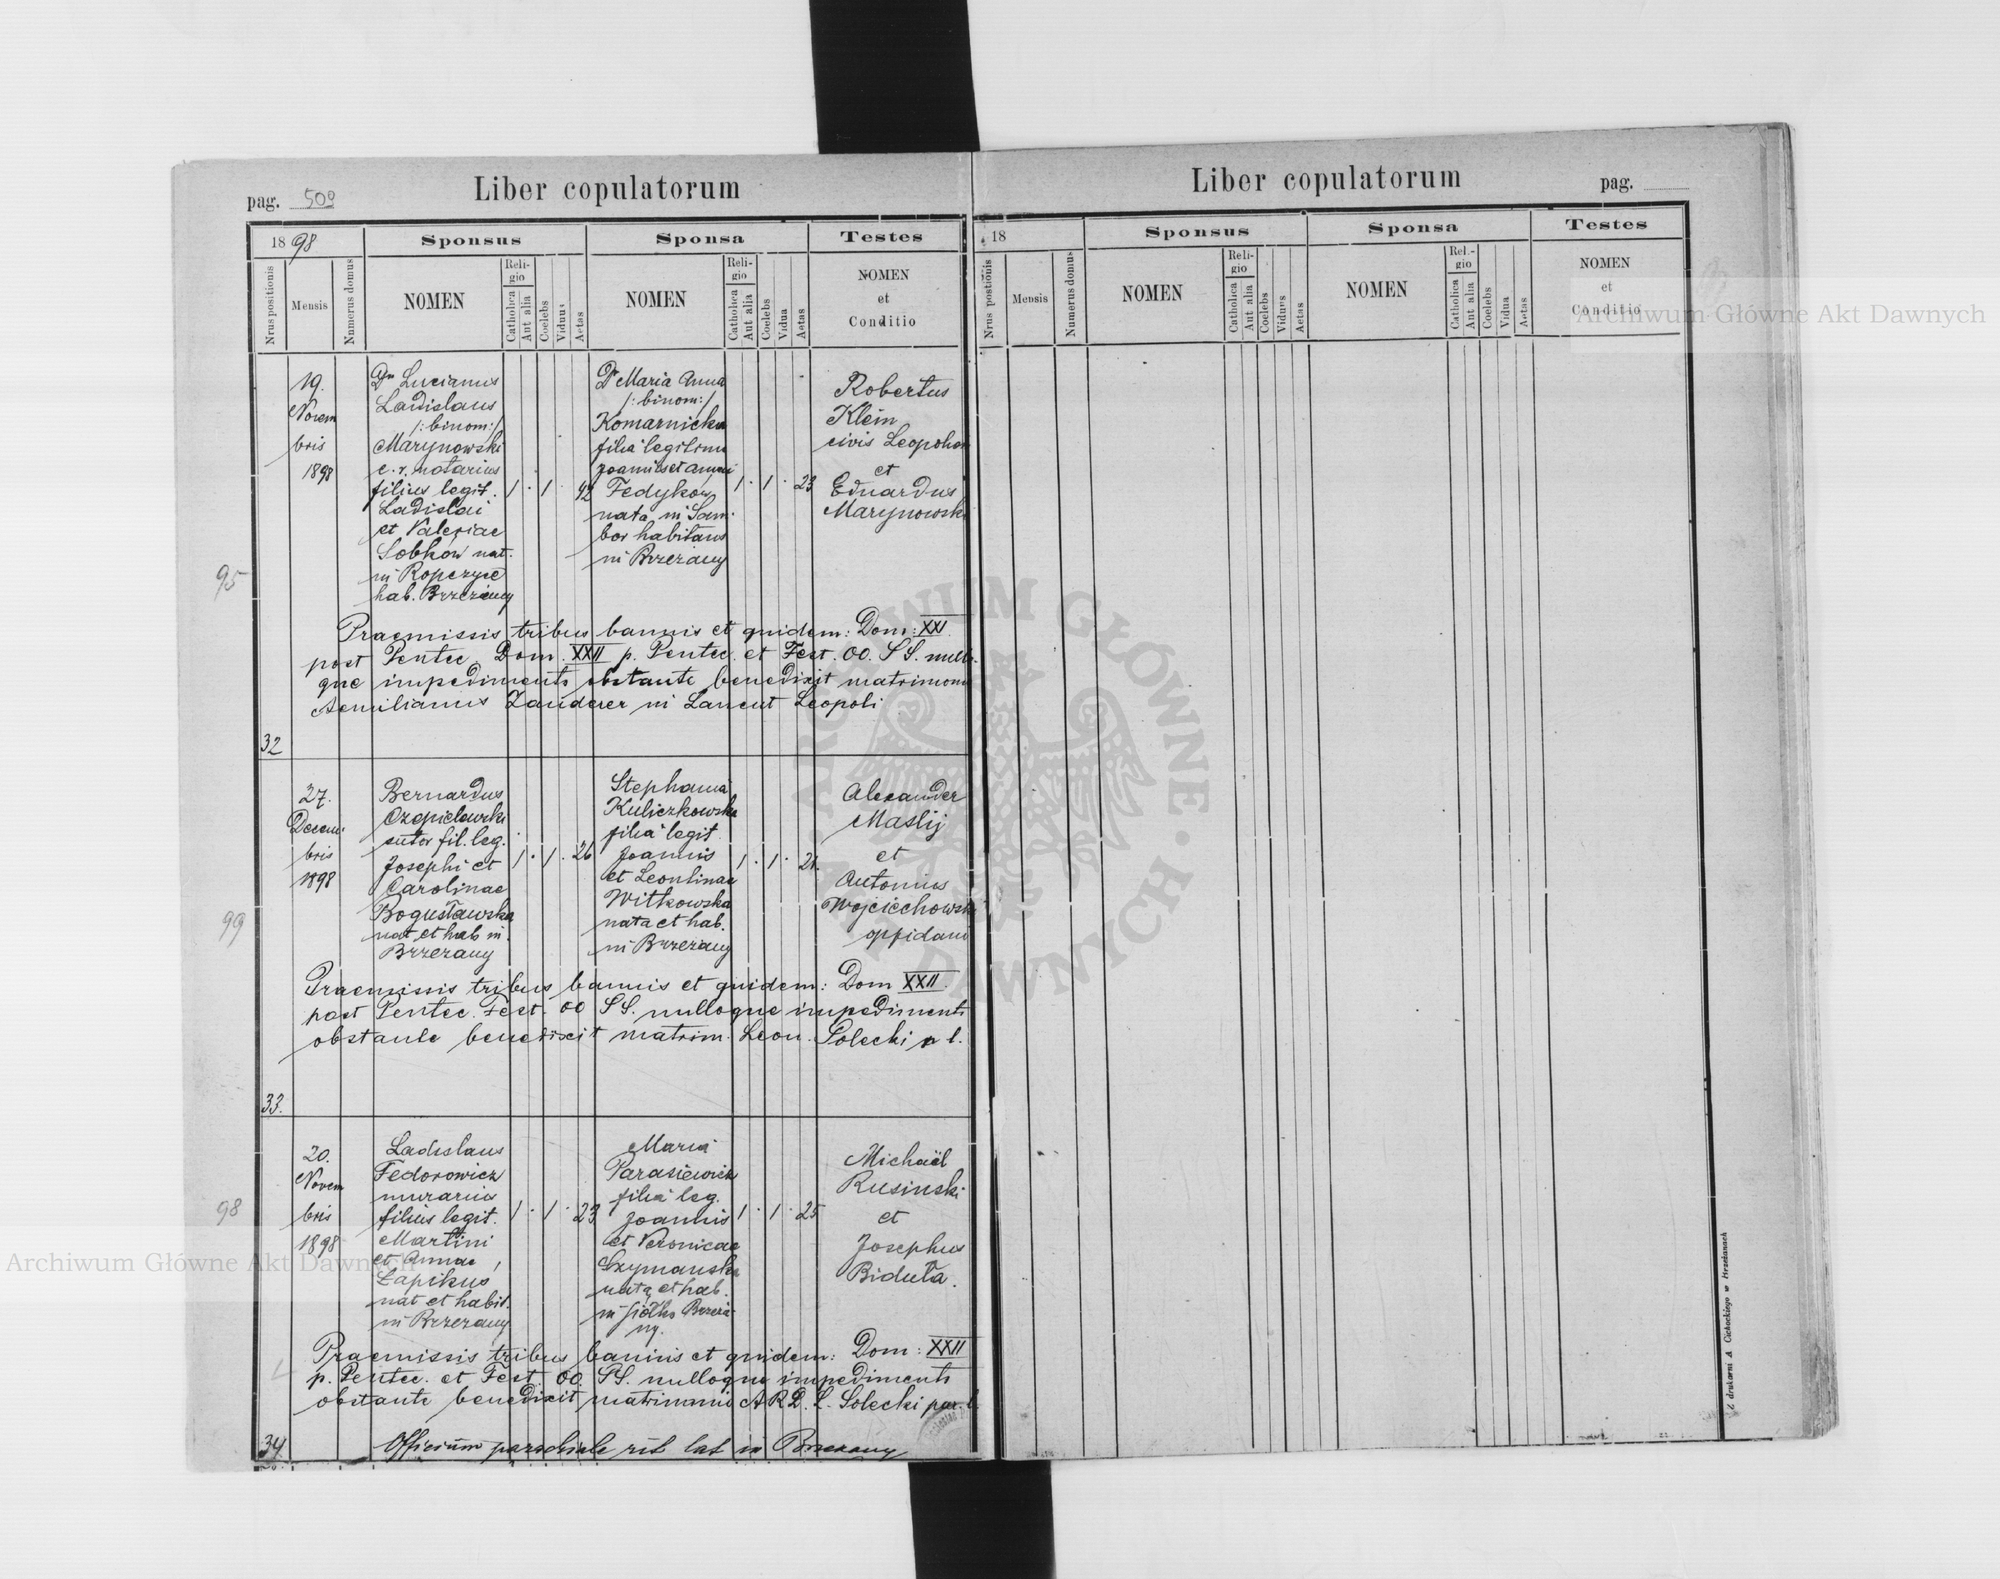 Liber copulatorum
pag. 500
1898
Sponsus
Sponsa
Testes
Nrus positionis
Mensis
Numerus domus
NOMEN
Religio
Catholica
Aut alia
Coelebs
Viduus
Aetas
NOMEN
Religio
Catholica
Aut alia
Coelebs
Vidua
Aetas
NOMEN
et
Conditio
95
32
19.
Novem
bris
1898
Dn Lucianus
Ladislaus
/:binom:/
Marynowski
c. r. notarius
filius legit.
Ladislai
et Valeriae
Sobków nat.
in Ropczyce
hab. Brzezany
1 · 1 · 42
Dr Maria Anna
/:binom:/
Komarnicka
filia legitima
Joannis et Annae
Fedyków
nata in Sam-
bor habitans
in Brzezany
1 · 1 · 23
Robertus
Klein
civis Leopolien
et
Eduardus
Marynowski
Praemissis tribus bannis et quidem: Dom: XXI.
post Pentec. Dom. XXII p. Pentec. et Fest. OO. SS. nullo-
que impedimento obstante benedixit matrimonio
Aemilianus Zauderer in Lancut Leopoli
99
33.
27.
Decem-
bris
1898
Bernardus
Czepielowski
sutor fil. leg.
Josephi et
Carolinae
Bogusławska
nat. et hab in
Brzezany
1 · 1 · 26
Stephania
Kuliczkowska
filia legit
Joannis
et Leontinae
Witkowska
nata et hab.
in Brzezany
1 · 1 · 21.
Alexander
Maslij
et
Antonius
Wojciechowski
oppidani
Praemissis tribus bannis et quidem: Dom XXII.
post Pentec. Fest. OO SS. nulloque impedimento
obstante benedixit matrim. Leon. Solecki p l.
98
34.
20.
Novem
bris
1898
Ladislaus
Fedorowicz
murarius
filius legit.
Martini
et Annae
Łapikus
nat et habit.
in Brzezany
1 · 1 · 23
Maria
Parasiewicz
filia leg.
Joannis
et Veronicae
Szymanska
nata et hab.
in Brzeza-
ny.
1 · 1 · 25
Michaël
Rusinski
et
Josephus
Biduła.
Praemissis tribus bannis et quidem: Dom: XXII
p. Pentec. et Fest. OO. SS. nulloque impedimento
obstante benedixit matrimonio A R D. L. Solecki par. l.
Officium parochiale rit lat in Brzezany
Liber copulatorum
pag.
18
Sponsus
Sponsa
Testes
Nrus postionis
Mensis
Numerus domus
NOMEN
Religio
Catholica
Aut alia
Coelebs
Viduus
Aetas
NOMEN
Religio
Catholica
Aut alia
Coelebs
Vidua
Aetas
NOMEN
et
Conditio
Z drukarni A Cichockiego w Brzeżanach
Archiwum Główne Akt Dawnych
Archiwum Główne Akt Dawnych
ARCHIWUM GŁÓWNE · AKT DAWNYCH ·